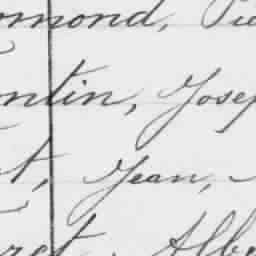 mond, Pie
ntin, Josep
t, Jean,
ret, Albe